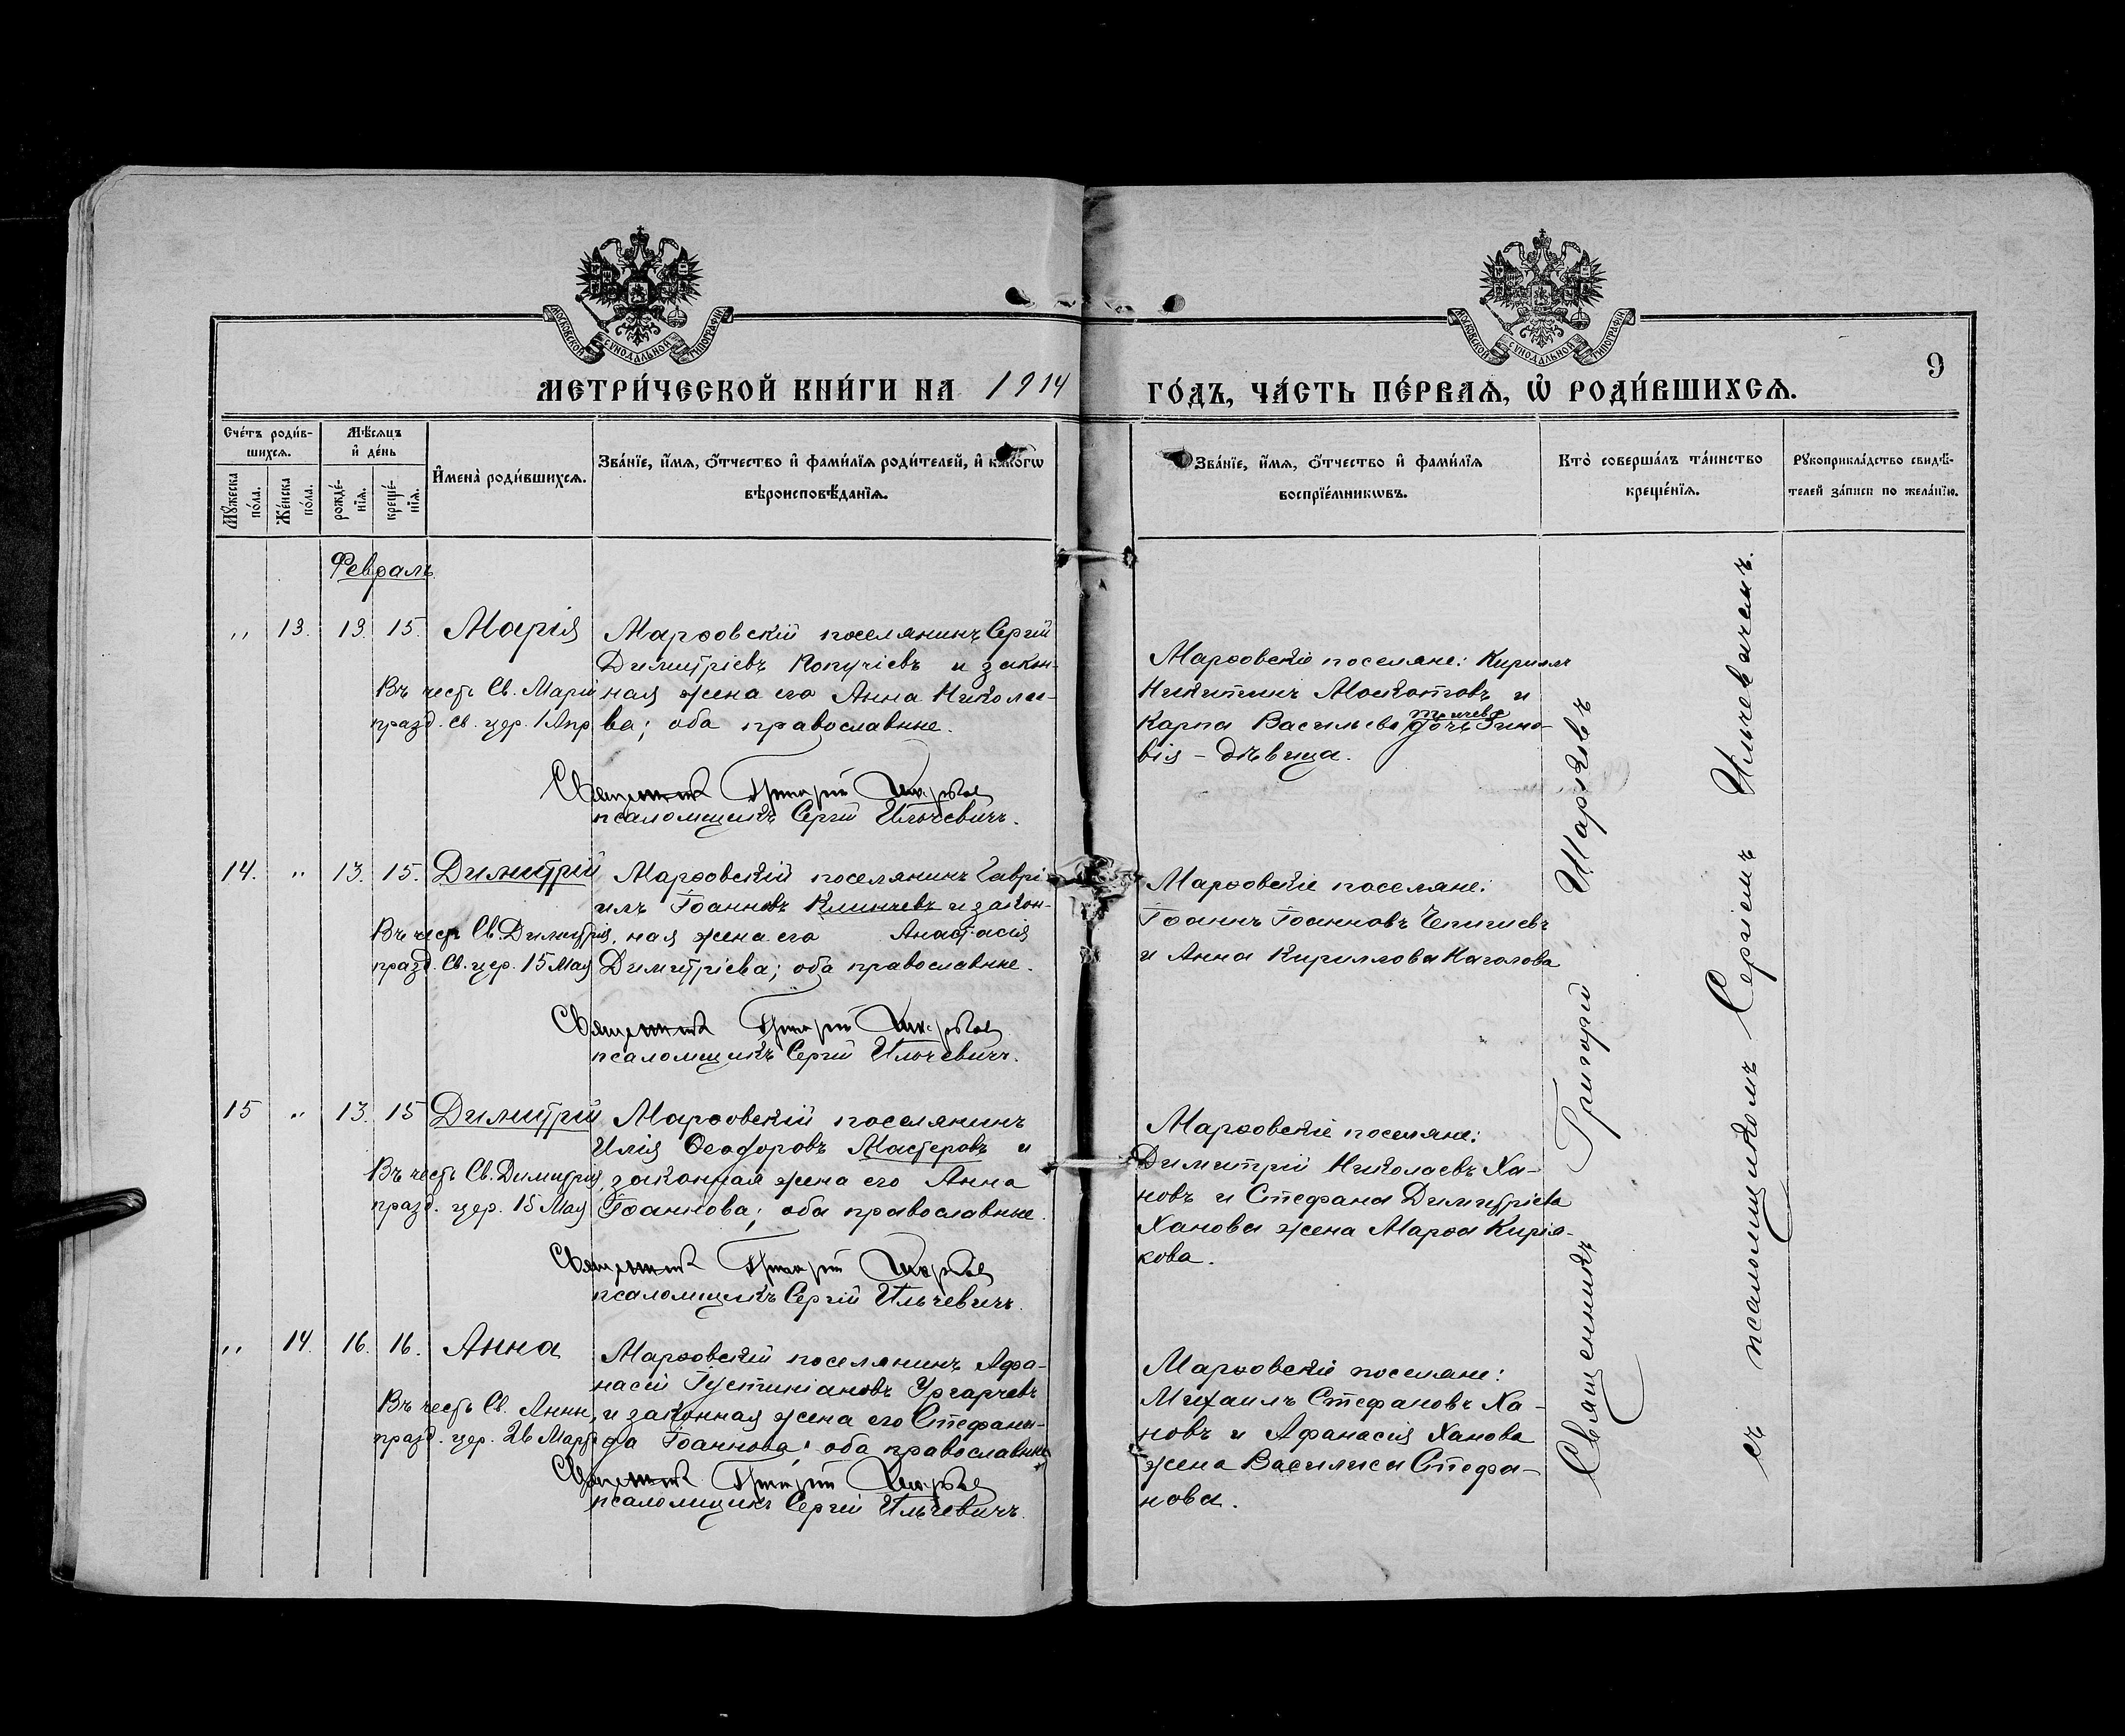 МОСКОВСКОЙ СѴНОДАЛЬНОЙ ТИПОГРАФІИ
МОСКОВСКОЙ СѴНОДАЛЬНОЙ ТИПОГРАФІИ
9
МЕТРИ́ЧЕСКОЙ КНИ́ГИ НА 1914 ГО́ДЪ, ЧА́СТЬ ПЕ́РВАѦ, Ѽ РОДИ́ВШИХСѦ.
Сче́тъ роди́в-
шихсѧ.
Мꙋ́жеска по́ла.
Же́нска по́ла.
Мѣ́сѧцъ и҆ де́нь
рожде́-нїѧ.
креще́-нїѧ.
И҆мена̀ роди́вшихсѧ.
Зва́нїе, и҆́мѧ, ѻ҆́тчество и҆ фами́лїѧ роди́телей, и҆ како́гѡ
вѣроисповѣ́данїѧ.
Зва́нїе, и҆́мѧ, ѻ҆́тчество и҆ фами́лїѧ
воспрїе́мникѡвъ.
Кто̀ соверша́лъ та́инство
креще́нїѧ.
Рꙋкоприкла́дство свидѣ́-
телей за́писи по жела́нїю.
Февраль.
,, 13. 13. 15. Марія
Въ честь Св. Маріи
празд. св. цер. 1 Апр
Марѳовскій поселянинъ Сергій
Димитріевъ Копучіевъ и закон-
ная жена его Анна Никола-
ва; оба православные.
Священникъ Григорій Шарковъ
псаломщикъ Сергій Ильчевичъ.
Марѳовскіе поселяне: Кирилъ
Никитинъ и
Карпа Васильева дочь Зино-
вія – дѣвица.
14. ,, 13. 15. Димитрій
Въ честь Св. Димитрія,
празд. Св. цер. 15 Мая
Марѳовскій поселянинъ Гаврі-
илъ Іоанновъ Климчевъ и закон-
ная жена его Анастасія
Димитріева; оба православные.
Священникъ Григорій Шарковъ
псаломщикъ Сергій Ильчевичъ.
Марѳовскіе поселяне:
Іоаннъ Іоанновъ
и Анна Кириллова Каголова
15 ,, 13. 15 Димитрій
Въ честь Св. Димитрія,
празд. цер. 15 Мая
Марѳовскій поселянинъ
Илія Ѳеодоровъ Мастеровъ и
законная жена его Анна
Іоаннова; оба православные.
Священникъ Григорій Шарковъ
псаломщикъ Сергій Ильчевичъ.
Марѳовскіе поселяне:
Димитрій Николаевъ Ха-
новъ и Стефана Димитріева
Ханова жена Марѳа Кирія-
кова.
,, 14. 16. 16. Анна
Въ честь Св. Анны,
празд. цер. 26 Марта
Марѳовскій поселянинъ Афа-
насій Іустиніановъ Ургарчевъ
и законная жена его Стефани-
да Іоаннова; оба православные
Священникъ Григорій Шарковъ
псаломщикъ Сергій Ильчевичъ.
Марѳовскіе поселяне:
Михаилъ Стефановъ Ха-
новъ и Афанасія Ханова
жена Василиса Стефа-
нова.
Священникъ Григорій Шарковъ
съ псаломщикомъ Сергіемъ Ильчевичемъ.